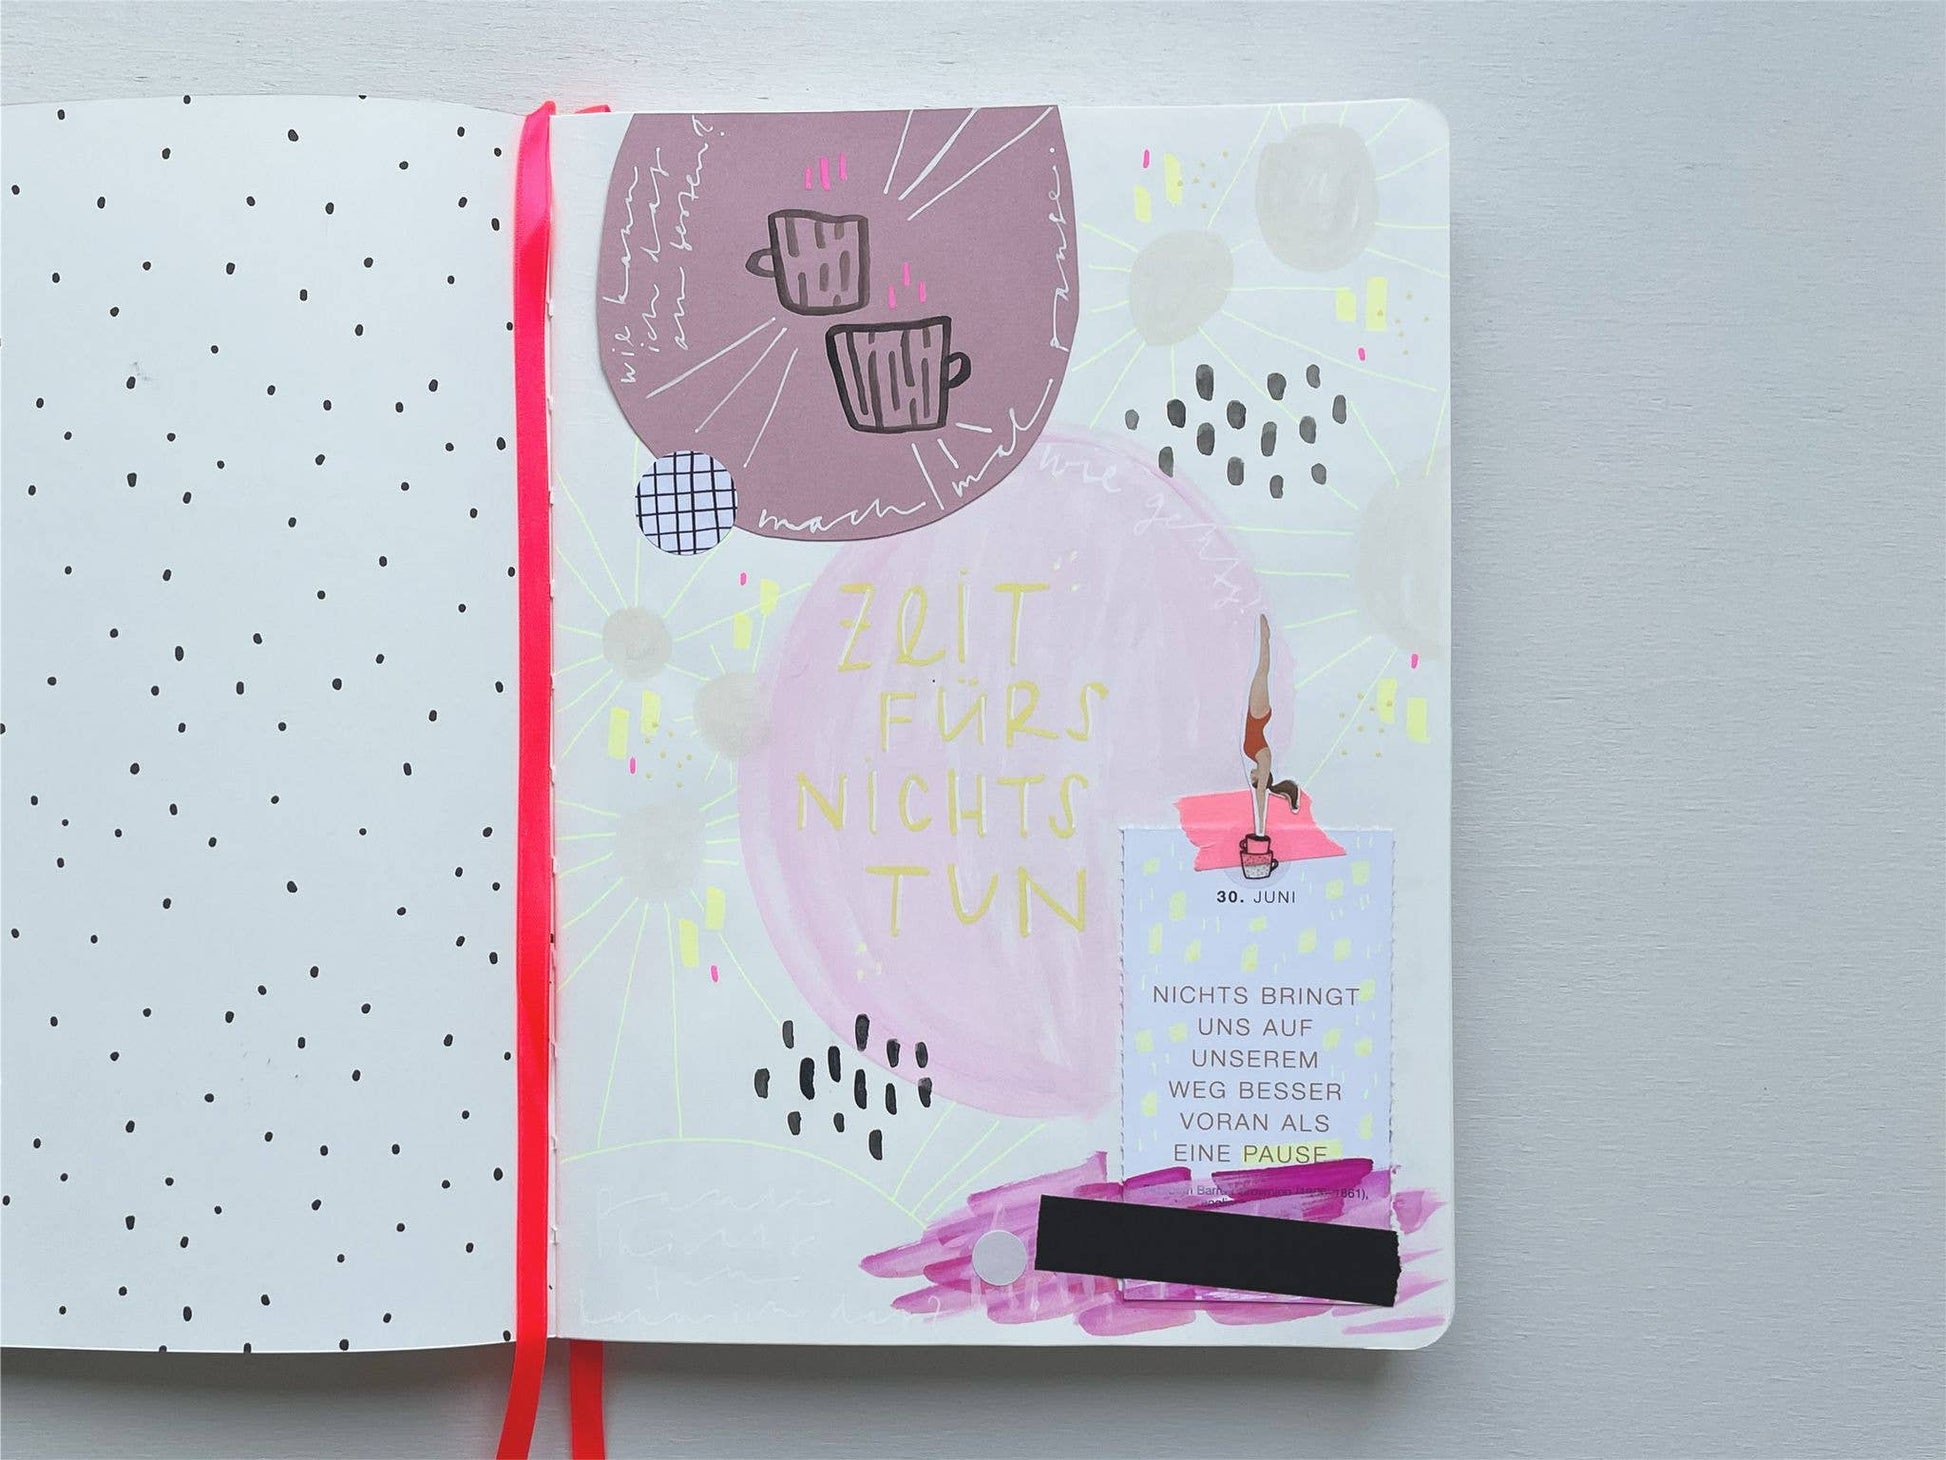 wie kann
ich das
am besten?
mach mal
pause.
wie
ZEIT
FÜRS
NICHTS
TUN
30. JUNI
NICHTS BRINGT
UNS AUF
UNSEREM
WEG BESSER
VORAN ALS
EINE PAUSE
kann ich das?